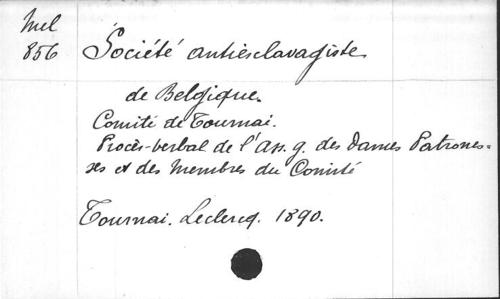 Mel
856
Société antiesclavagiste
de Belgique.
Comité de Tournai.
Procès-verbal de l'Ass. g. des Dames Patrones=
ses et des Membres du Comité
Tournai. Leclercq. 1890.